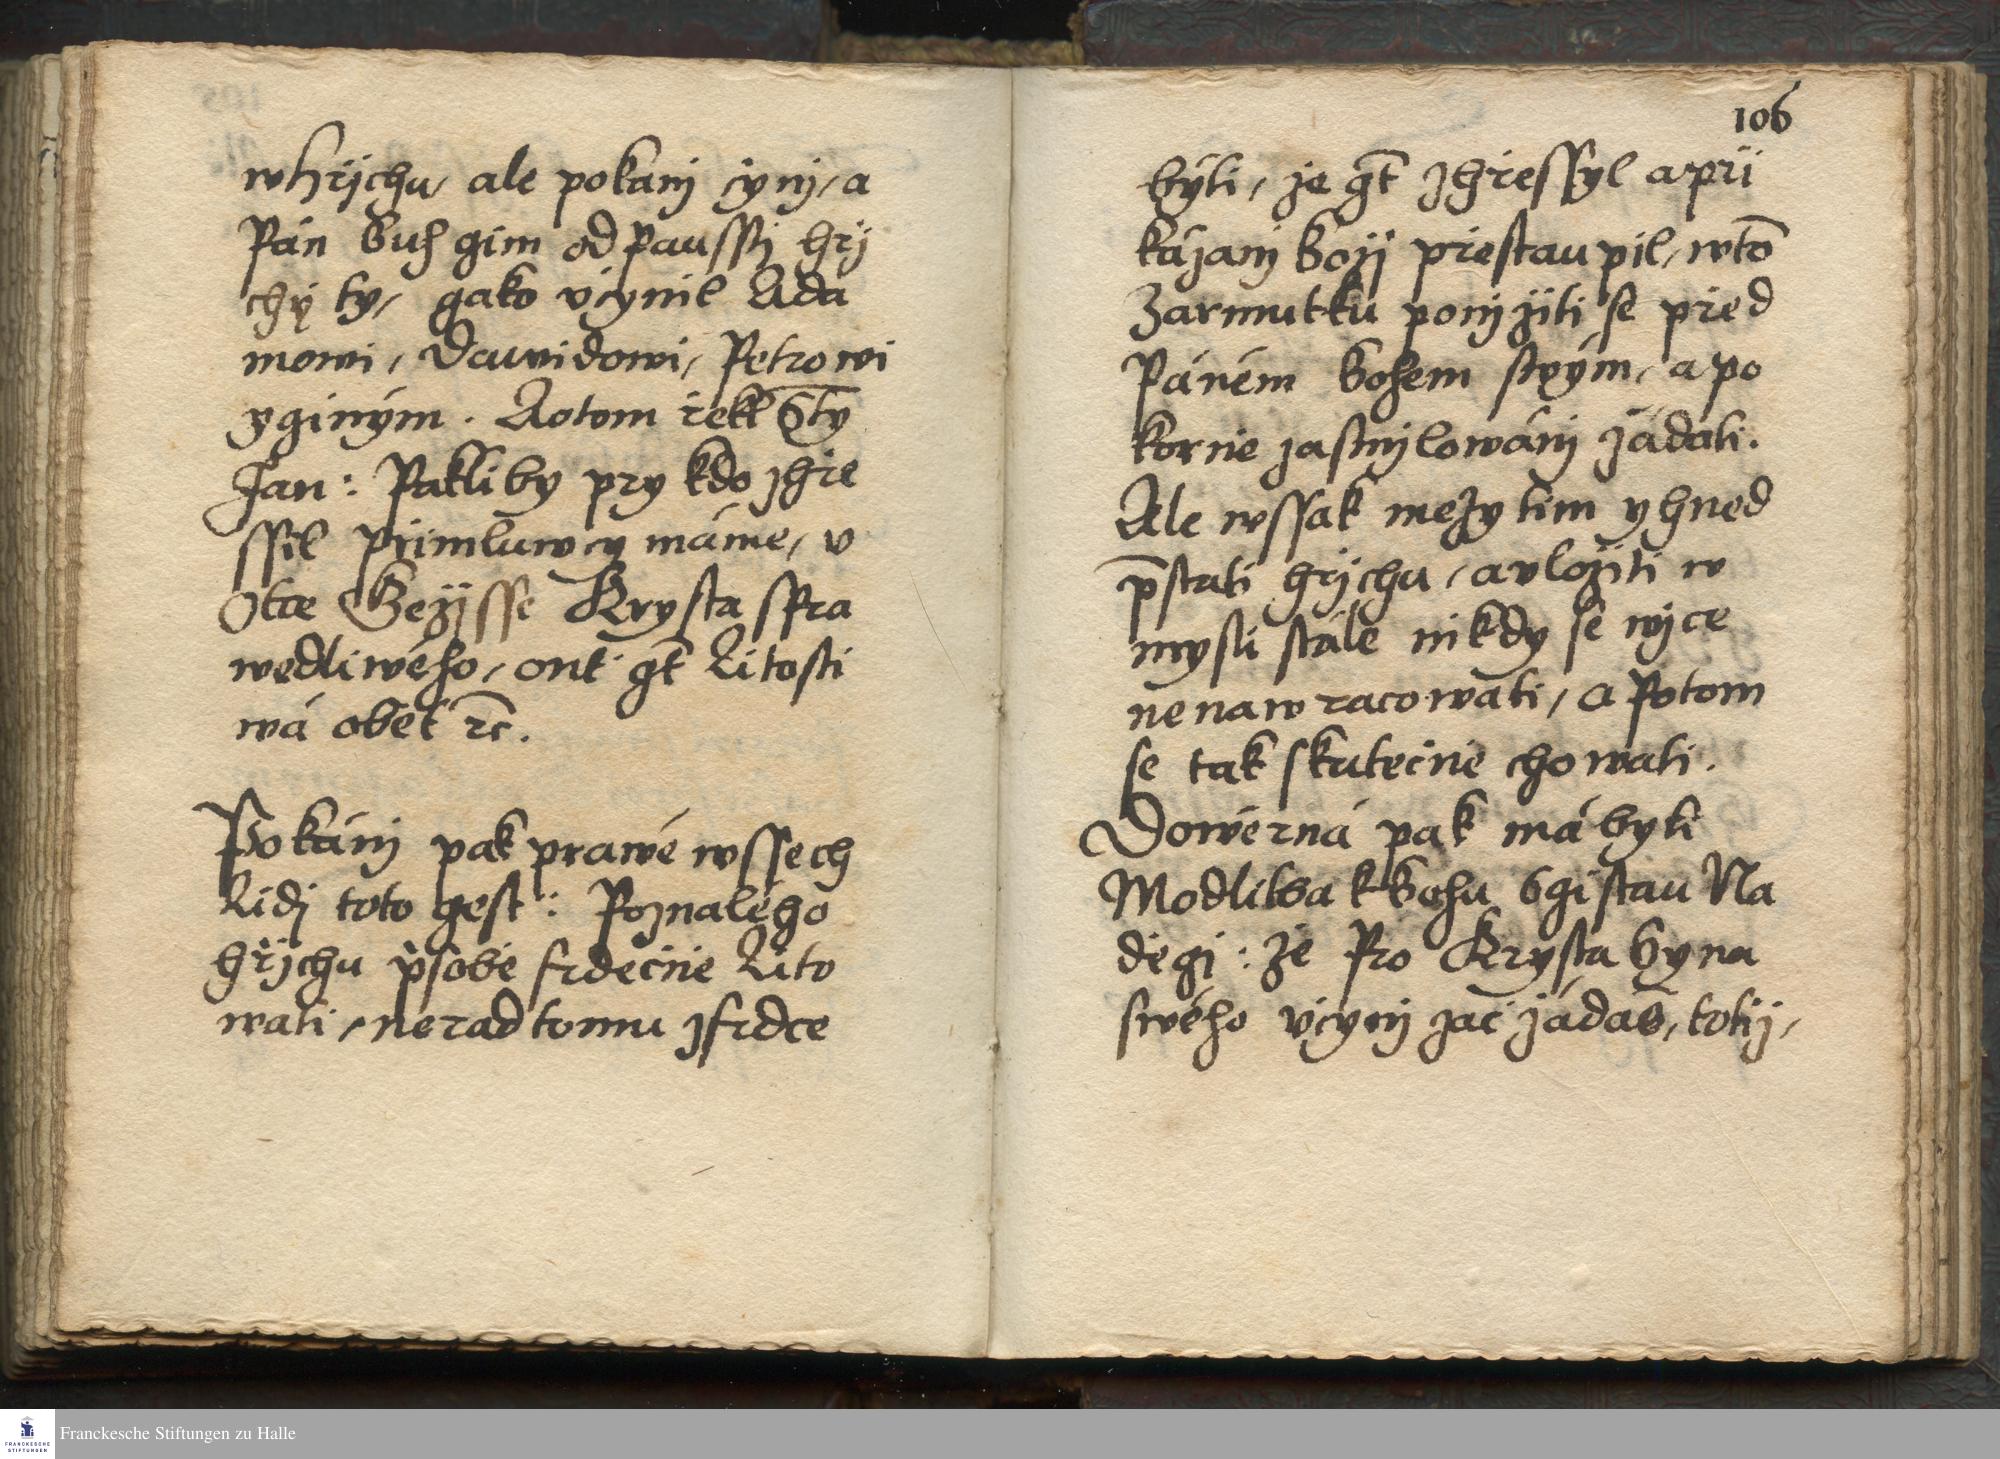 whřijchu, ale pokanj čynj, a
Pán Buh gim odpausstj hřj
chy ty, gako včynil Ada
mowi, Dawidowi, Petrowi
y giným. A o tom řekl Sty
Jan: Pakli by pry kdo zhře
ssil přimluwcy máme, v
Otce Gežjsse Krysta spra
wedliwého, onť gt Litosti
wá obět rc.
Pokánj pak prawé wssech
Lidj toto gest: Poznalého
hřjchu p sobě srdečně Lito
wati, nerad tomu zsrdce
106
býti, že gt zhřessyl a při
kázanj Božj přestaupil, wto
Zarmutku ponjžiti se před
Páném Bohem swým, a po
korně zasmylowánj žádati.
Ale wssak mezy tim y hned
pstati hřjchu, a vložiti w
mysli stále nikdy se wjce
nenawracowati, a Potom
se tak skutečně chowati.
Dowěrná pak má byti
Modlitba k Bohu s gistau Na
děgj: že Pro Krysta Syna
swého včynj zač žádáš, totiž,
Franckesche Stiftungen zu Halle
FRANCKESCHE
STIFTUNGEN